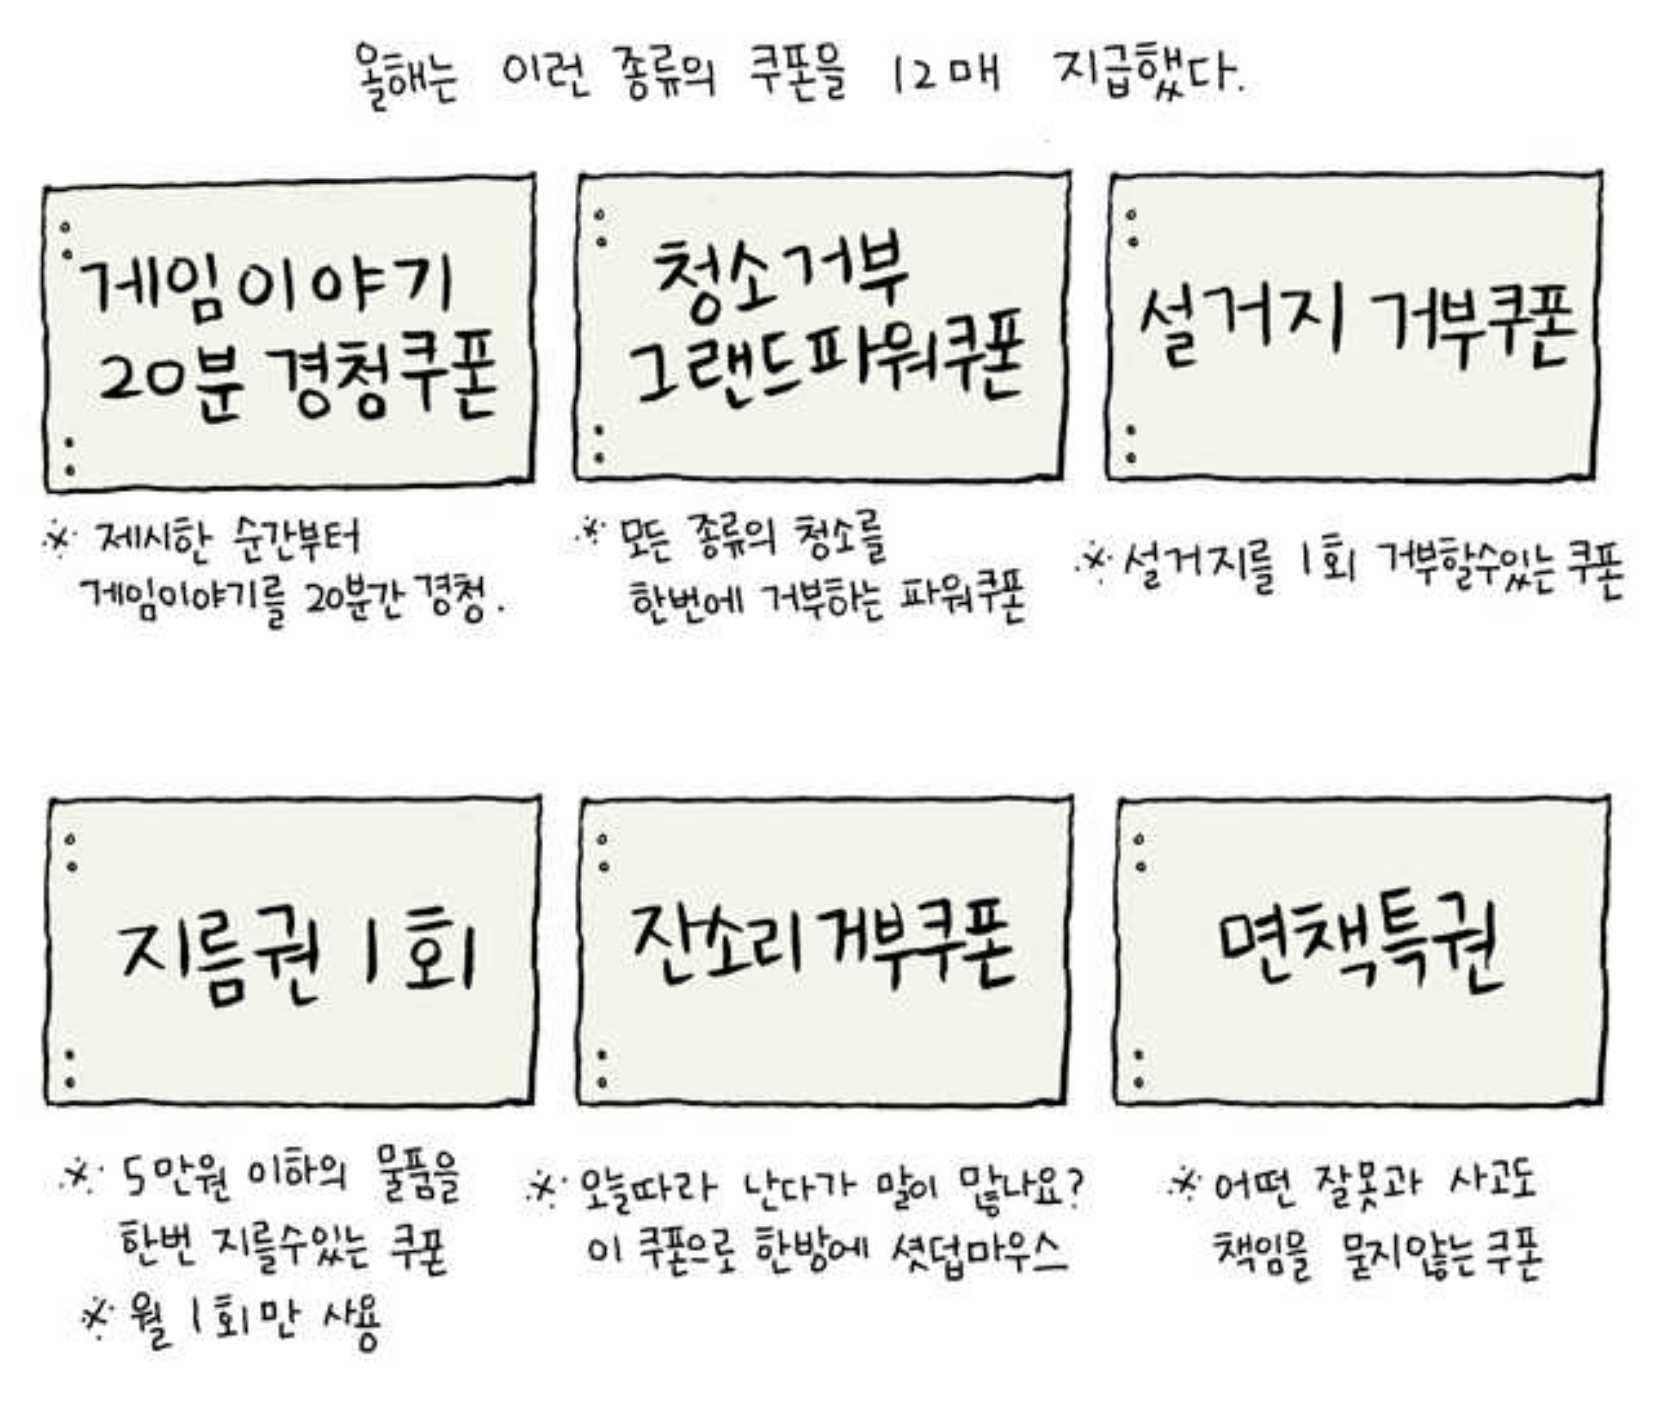 올해는 이런 종류의 쿠폰을 12매 지급했다.
게임이야기
20분 경청쿠폰
※ 제시한 순간부터
게임이야기를 20분간 경청.
청소거부
그랜드파워쿠폰
※ 모든 종류의 청소를
한번에 거부하는 파워쿠폰
설거지 거부쿠폰
※ 설거지를 1회 거부할수있는 쿠폰
지름권 1회
※ 5만원 이하의 물품을
한번 지를수있는 쿠폰
※ 월 1회만 사용
잔소리 거부쿠폰
※ 오늘따라 난다가 말이 많나요?
이 쿠폰으로 한방에 셧덥마우스
면책특권
※ 어떤 잘못과 사고도
책임을 묻지않는 쿠폰